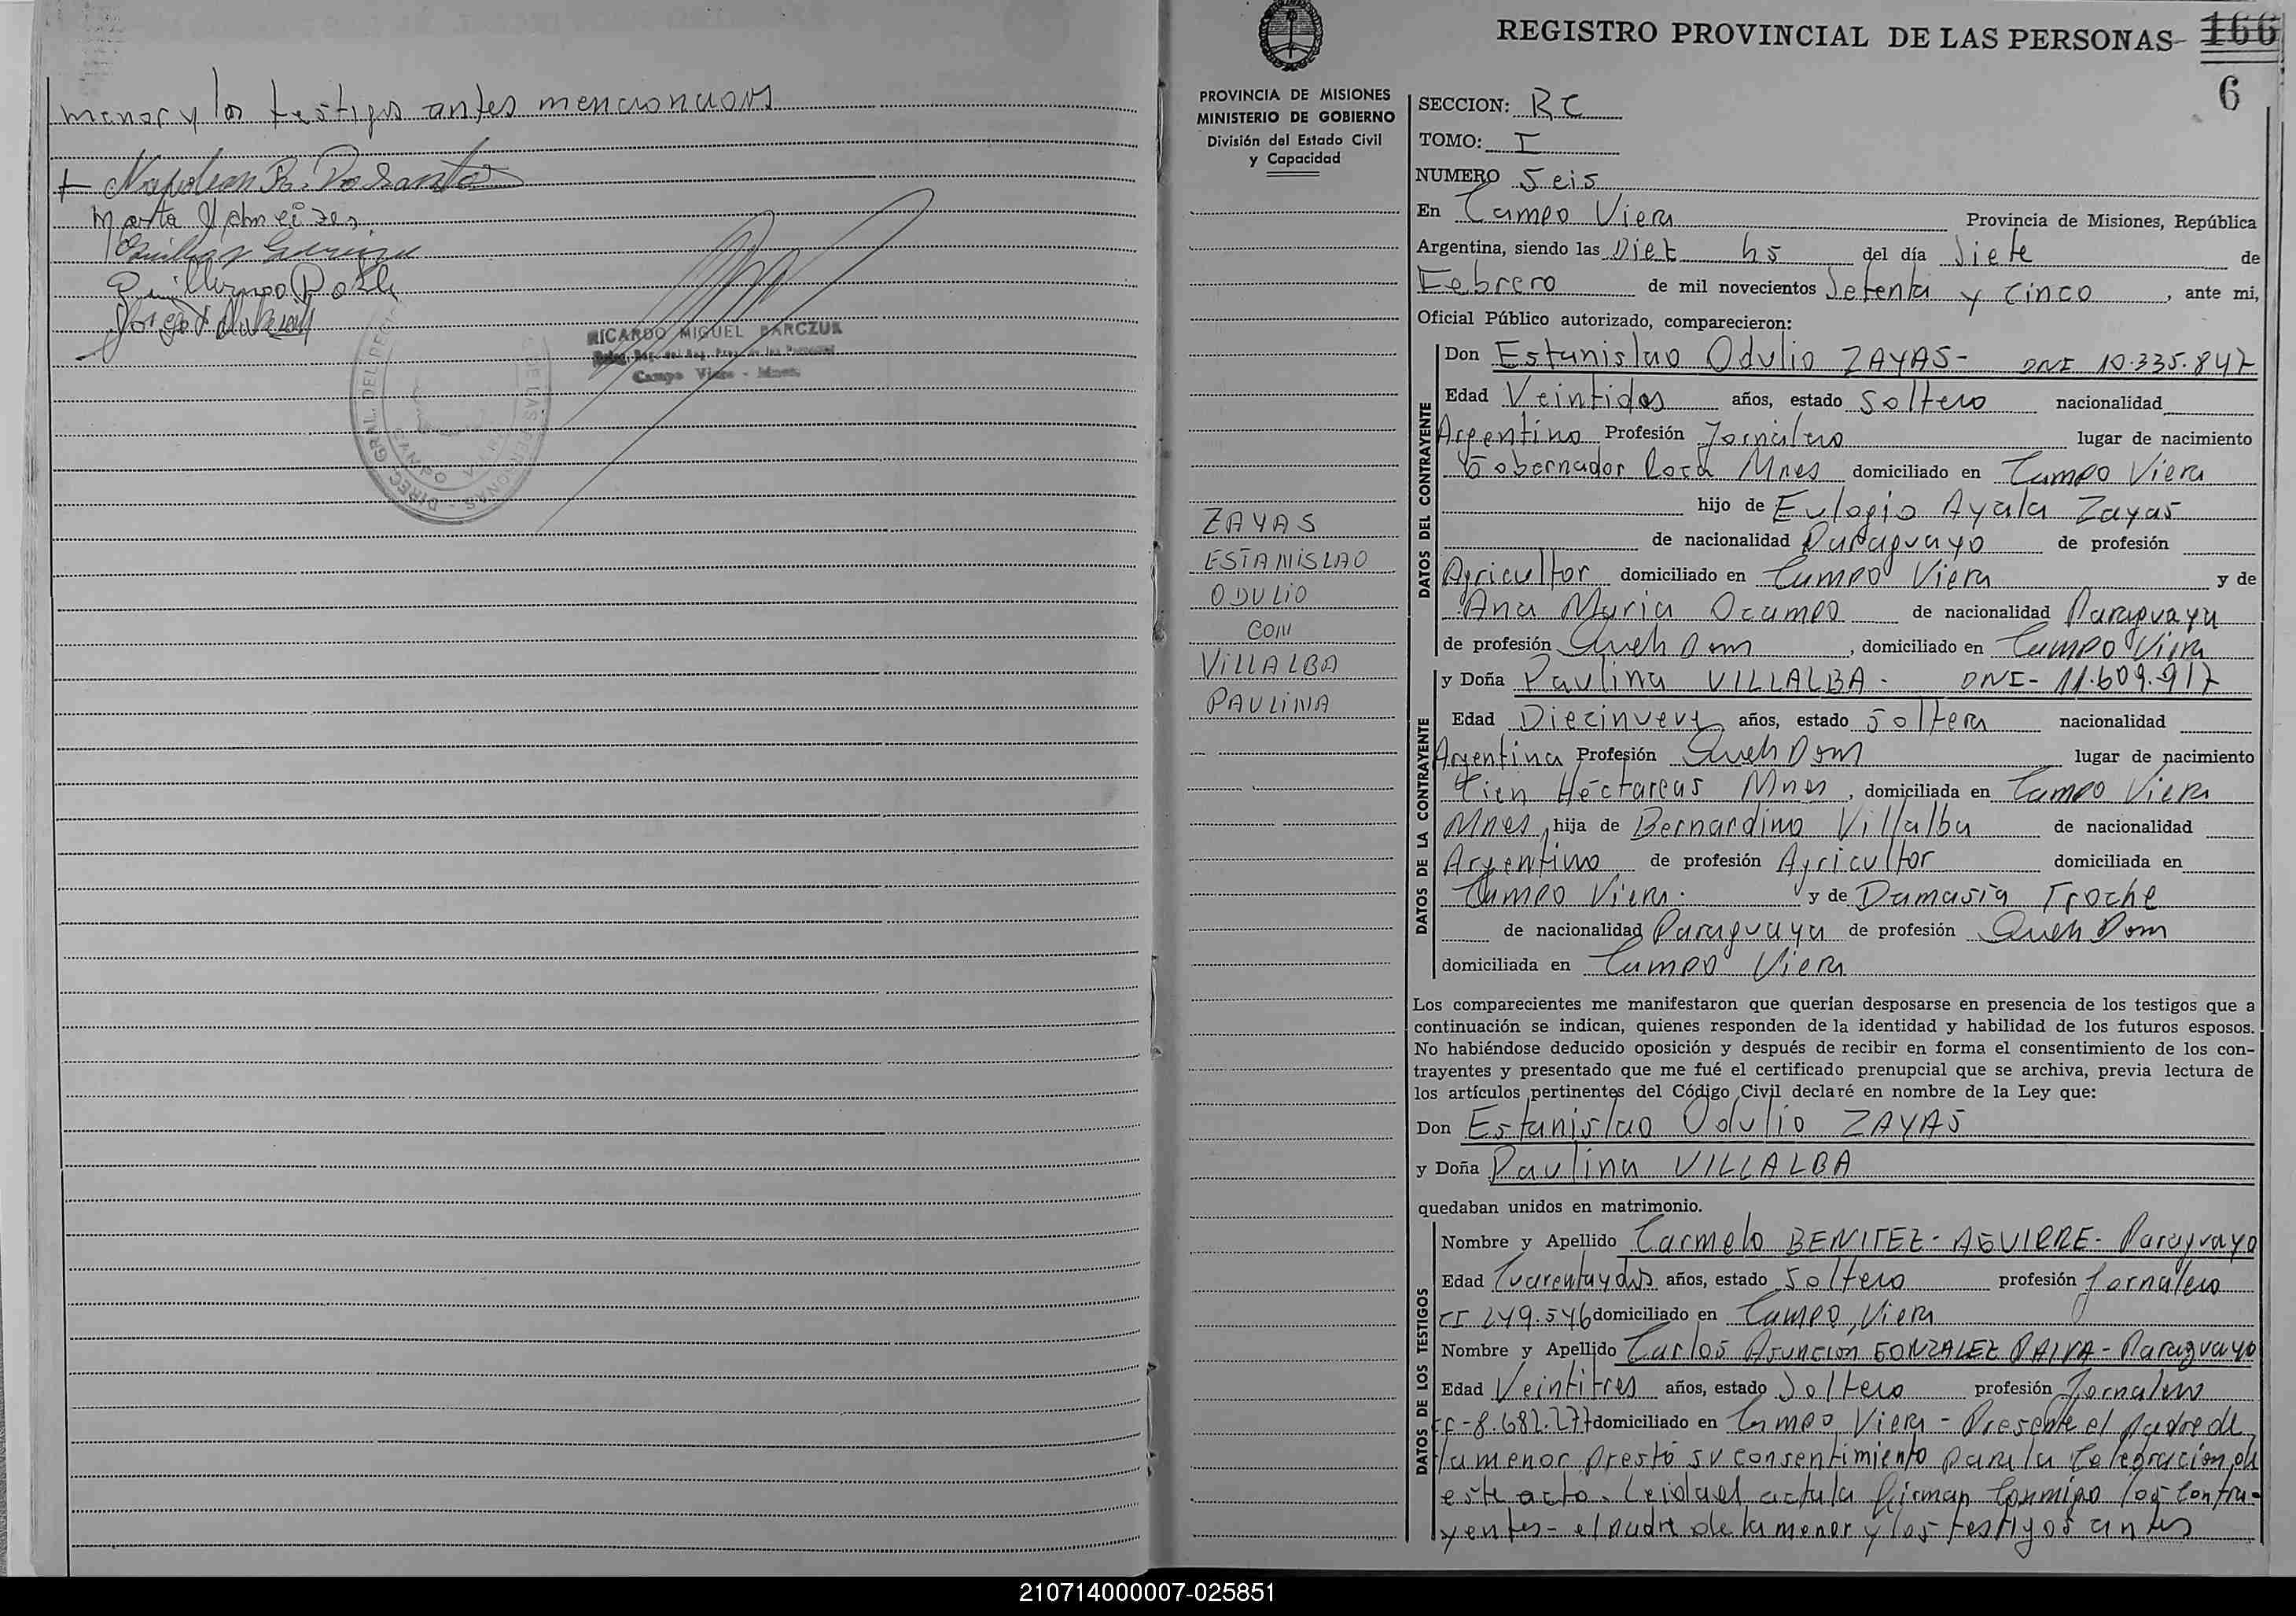 menor y los testigos antes mencionados
Napoleon R. Dos Santos
Marta
Guillermo
RICARDO MIGUEL BARCZUK
Campo Viera - Mnes.
DIREC. GRAL. DEL REG. DE LAS PERSONAS
CAMPO VIERA
REGISTRO PROVINCIAL DE LAS PERSONAS
166
6
PROVINCIA DE MISIONES
MINISTERIO DE GOBIERNO
División del Estado Civil
y Capacidad
ZAYAS
ESTANISLAO
ODULIO
CON
VILLALBA
PAULINA
SECCION: RC
TOMO: I
NUMERO Seis
En Campo Viera Provincia de Misiones, República
Argentina, siendo las Diez hs del día Siete de
Febrero de mil novecientos Setenta y cinco, ante mi,
Oficial Público autorizado, comparecieron:
DATOS DEL CONTRAYENTE
Don Estanislao Odulio ZAYAS- DNI 10.335.847
Edad Veintidos años, estado Soltero nacionalidad
Argentino Profesión Jornalero lugar de nacimiento
Gobernador Roca Mnes domiciliado en Campo Viera
hijo de Eulogio Ayala Zayas
de nacionalidad Paraguayo de profesión
Agricultor domiciliado en Campo Viera y de
Ana Maria Ocampo de nacionalidad Paraguaya
de profesión Queh Dom, domiciliado en Campo Viera
DATOS DE LA CONTRAYENTE
y Doña Paulina VILLALBA - DNI- 11.609.917
Edad Diecinueve años, estado Soltera nacionalidad
Argentina Profesión Queh Dom lugar de nacimiento
Cien Héctareas Mnes, domiciliada en Campo Viera
Mnes, hija de Bernardino Villalba de nacionalidad
Argentino de profesión Agricultor domiciliada en
Campo Viera. y de Damasia Troche
de nacionalidad Paraguaya de profesión Queh Dom
domiciliada en Campo Viera
Los comparecientes me manifestaron que querían desposarse en presencia de los testigos que a
continuación se indican, quienes responden de la identidad y habilidad de los futuros esposos.
No habiéndose deducido oposición y después de recibir en forma el consentimiento de los con-
trayentes y presentado que me fué el certificado prenupcial que se archiva, previa lectura de
los artículos pertinentes del Código Civil declaré en nombre de la Ley que:
Don Estanislao Odulio ZAYAS
y Doña Paulina VILLALBA
quedaban unidos en matrimonio.
DATOS DE LOS TESTIGOS
Nombre y Apellido Carmelo BENITEZ-AGUIRRE- Paraguayo
Edad Cuarenta y dos años, estado Soltero profesión Jornalero
CI 249.546 domiciliado en Campo Viera
Nombre y Apellido Carlos Asuncion GONZALEZ PAIVA- Paraguayo
Edad Veintitres años, estado Soltero profesión Jornalero
8.682.277 domiciliado en Campo Viera - Presente el padre de
la menor prestó su consentimiento para la celebración de
este acto. Leida el acta la firman conmigo los contra-
yentes- el padre de la menor y los testigos antes
210714000007-025851